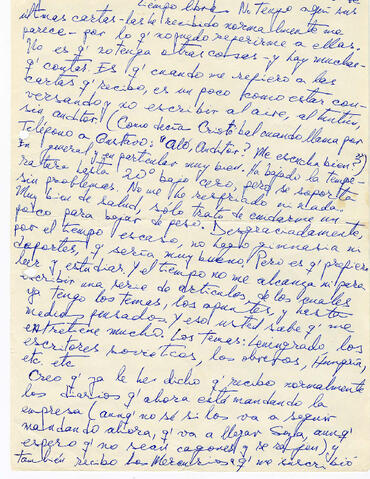 tiempo libre. No tengo aquí sus
últimas cartas - las he recibido normalmente me
parece - por lo q' no puedo referirme a ellas.
No es q' no tenga otras cosas - y hay muchas -
q' contar. Es q' cuando me refiero a las
cartas q' recibo, es un poco como estar con-
versando y no escribir al aire, al tuntún,
sin auditor (Como decía Cristóbal cuando llama por
Teléfono a Gustavo: "Aló, Auditor? Me escucha bien?")
En general y en particular muy bien. Ha bajado la tempe-
ratura hasta 20° bajo cero, pero se soporta
sin problemas. No me he resfriado ni nada.
Muy bien de salud, solo trato de cuidarme un
poco para bajar de peso. Desgraciadamente,
por el tiempo escaso, no hago gimnasia ni
deportes, y sería muy bueno. Pero es q' prefiero
leer y estudiar. Y el tiempo no me alcanza ni para
escribir una serie de artículos de los cuales
ya tengo los temas, los apuntes, y hasta
medio pensados y eso usted sabe q' me
entretiene mucho. Los temas: Leningrado, los
escritores soviéticos, los obreros, Hungría,
etc. etc.
Creo q' ya le he dicho q' recibo normalmente
los diarios q' ahora está mandando la
empresa (aunq' no sé si los va a seguir
mandando ahora, q' va a llegar Suja, aunq'
espero q' no sean cagones y se rajen) y
también recibo Los Mercurios q' me suscribió